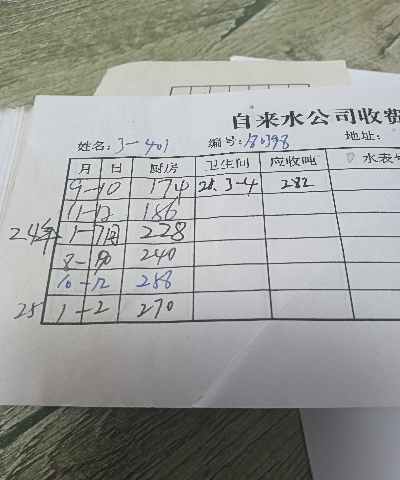 自来水公司收费
姓名: 3-401 编号: 地址:
月 日 厨房 卫生间 应收吨 水表
9-10 174 25. 3-4 282
11-12 186
24年 1- 228
8- 240
10-12 258
25 1-2 270